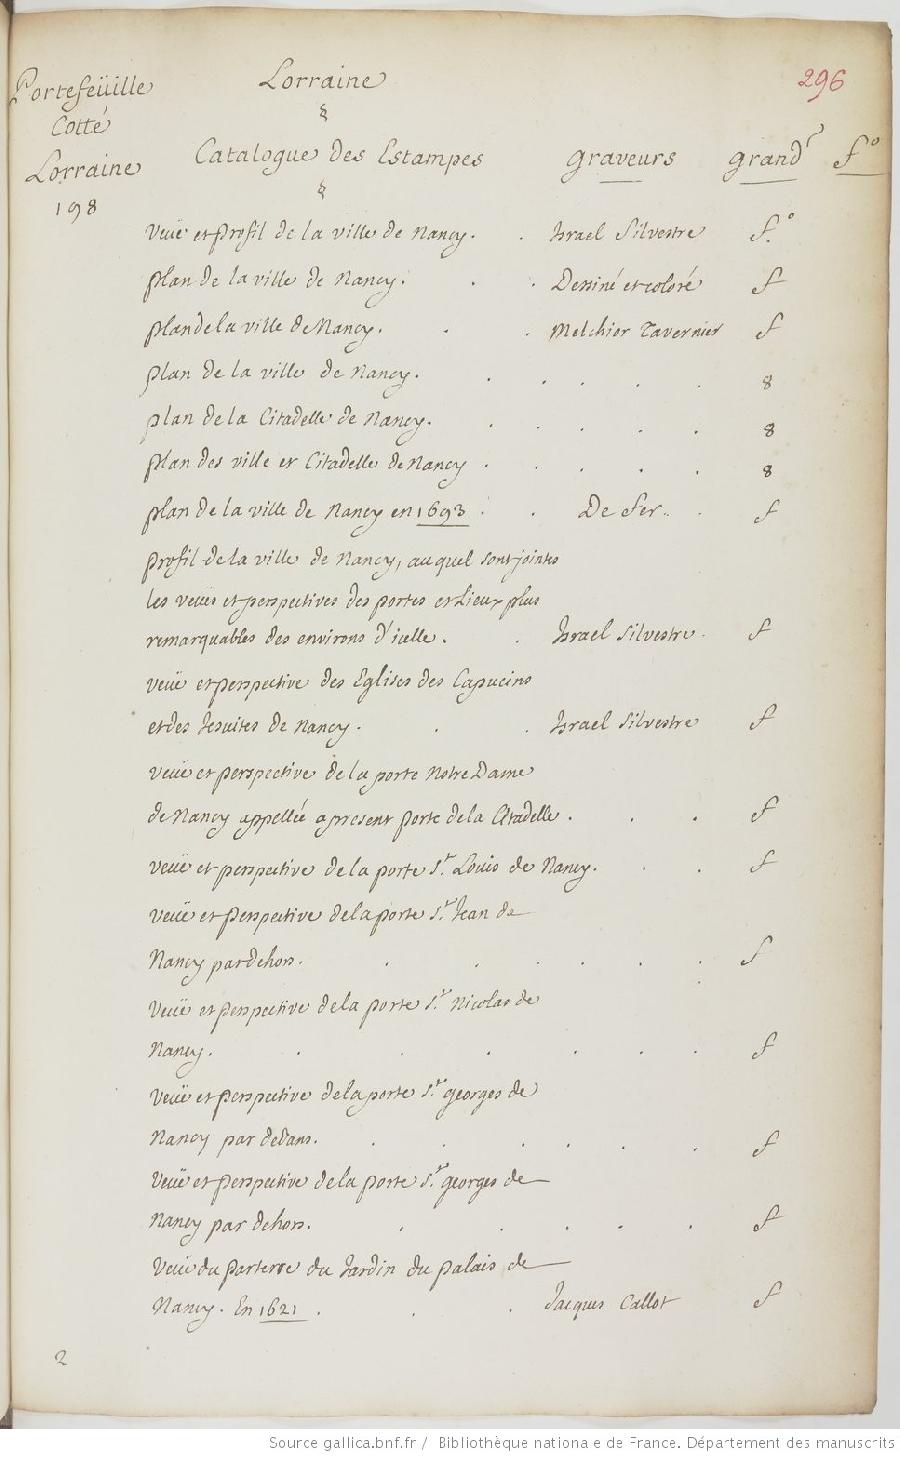 Portefeüille
Cotté
Lorraine
198
Lorraine
296
Catalogue des Estampes
graveurs
grandr
fo
Veüe et profil de la ville de Nancy. . Israel Silvestre f.o
plan de la ville de Nancy. . . Dessiné et coloré f
plan de la ville de Nancy. . . Melchior Tavernier f
plan de la ville de Nancy. . . . . . 8
plan de la Citadelle de Nancy. . . . . . 8
plan des ville et Citadelle de Nancy . . . . . 8
plan de la ville de Nancy en 1693 . . De fer. . f
profil de la ville de Nancy, auquel sont jointes
les veües et perspectives des portes et Lieux plus
remarquables des environs d'icelle. . Israel Silvestre. f
veüe et perspective des Eglises des Capucins
et des Jesuites de Nancy. . . Israel Silvestre f
veüe et perspective de la porte Notre Dame
de Nancy appellée apresent porte de la Citadelle. . . f
veüe et perspective de la porte St. Louis de Nancy. . . f
veüe et perspective de la porte St. Jean de
Nancy par dehors. . . . . . . f
Veüe et perspective de la porte St. Nicolas de
Nancy. . . . . . . f
Veüe et perspective de la porte St. georges de
Nancy par dedans. . . . . . . f
Veüe et perspective de la porte St. georges de
Nancy par dehors. . . . . . f
Veüe du parterre du Jardin du palais de
Nancy. En 1621 . . . Jacques Callot f
2
Source gallica.bnf.fr / Bibliothèque nationale de France. Département des manuscrits